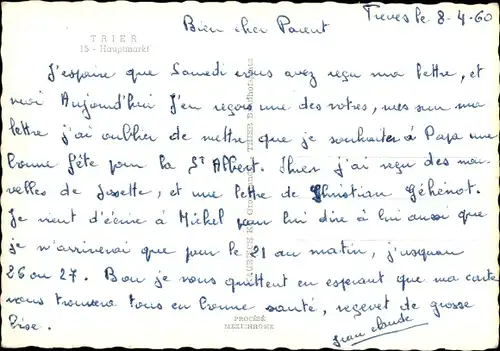 Treves le 8-4.60
Bien cher Parent
TRIER
15 - Hauptmarkt
J'espaire que Samedi vous avez reçu ma lettre, et
moi Aujourd'hui J'en reçois une des votres, mes sur ma
lettre j'ai oublier de mettre que je souhaiter à Papa une
bonne fête pour la St Albert. Hier j'ai reçu des nou-
velles de Josette, et une lettre de Christian Géhénot.
Je vient d'écrire à Michel pour lui dire à lui aussi que
je n'arriverai que pour le 21 au matin, j'usquau
26 ou 27. Bon je vous quittent en esperant que ma carte
vous trouvera tous en bonne santé, recevet de grosse
bise.
Jean Claude
PROCÉDÉ
MEXICHROME